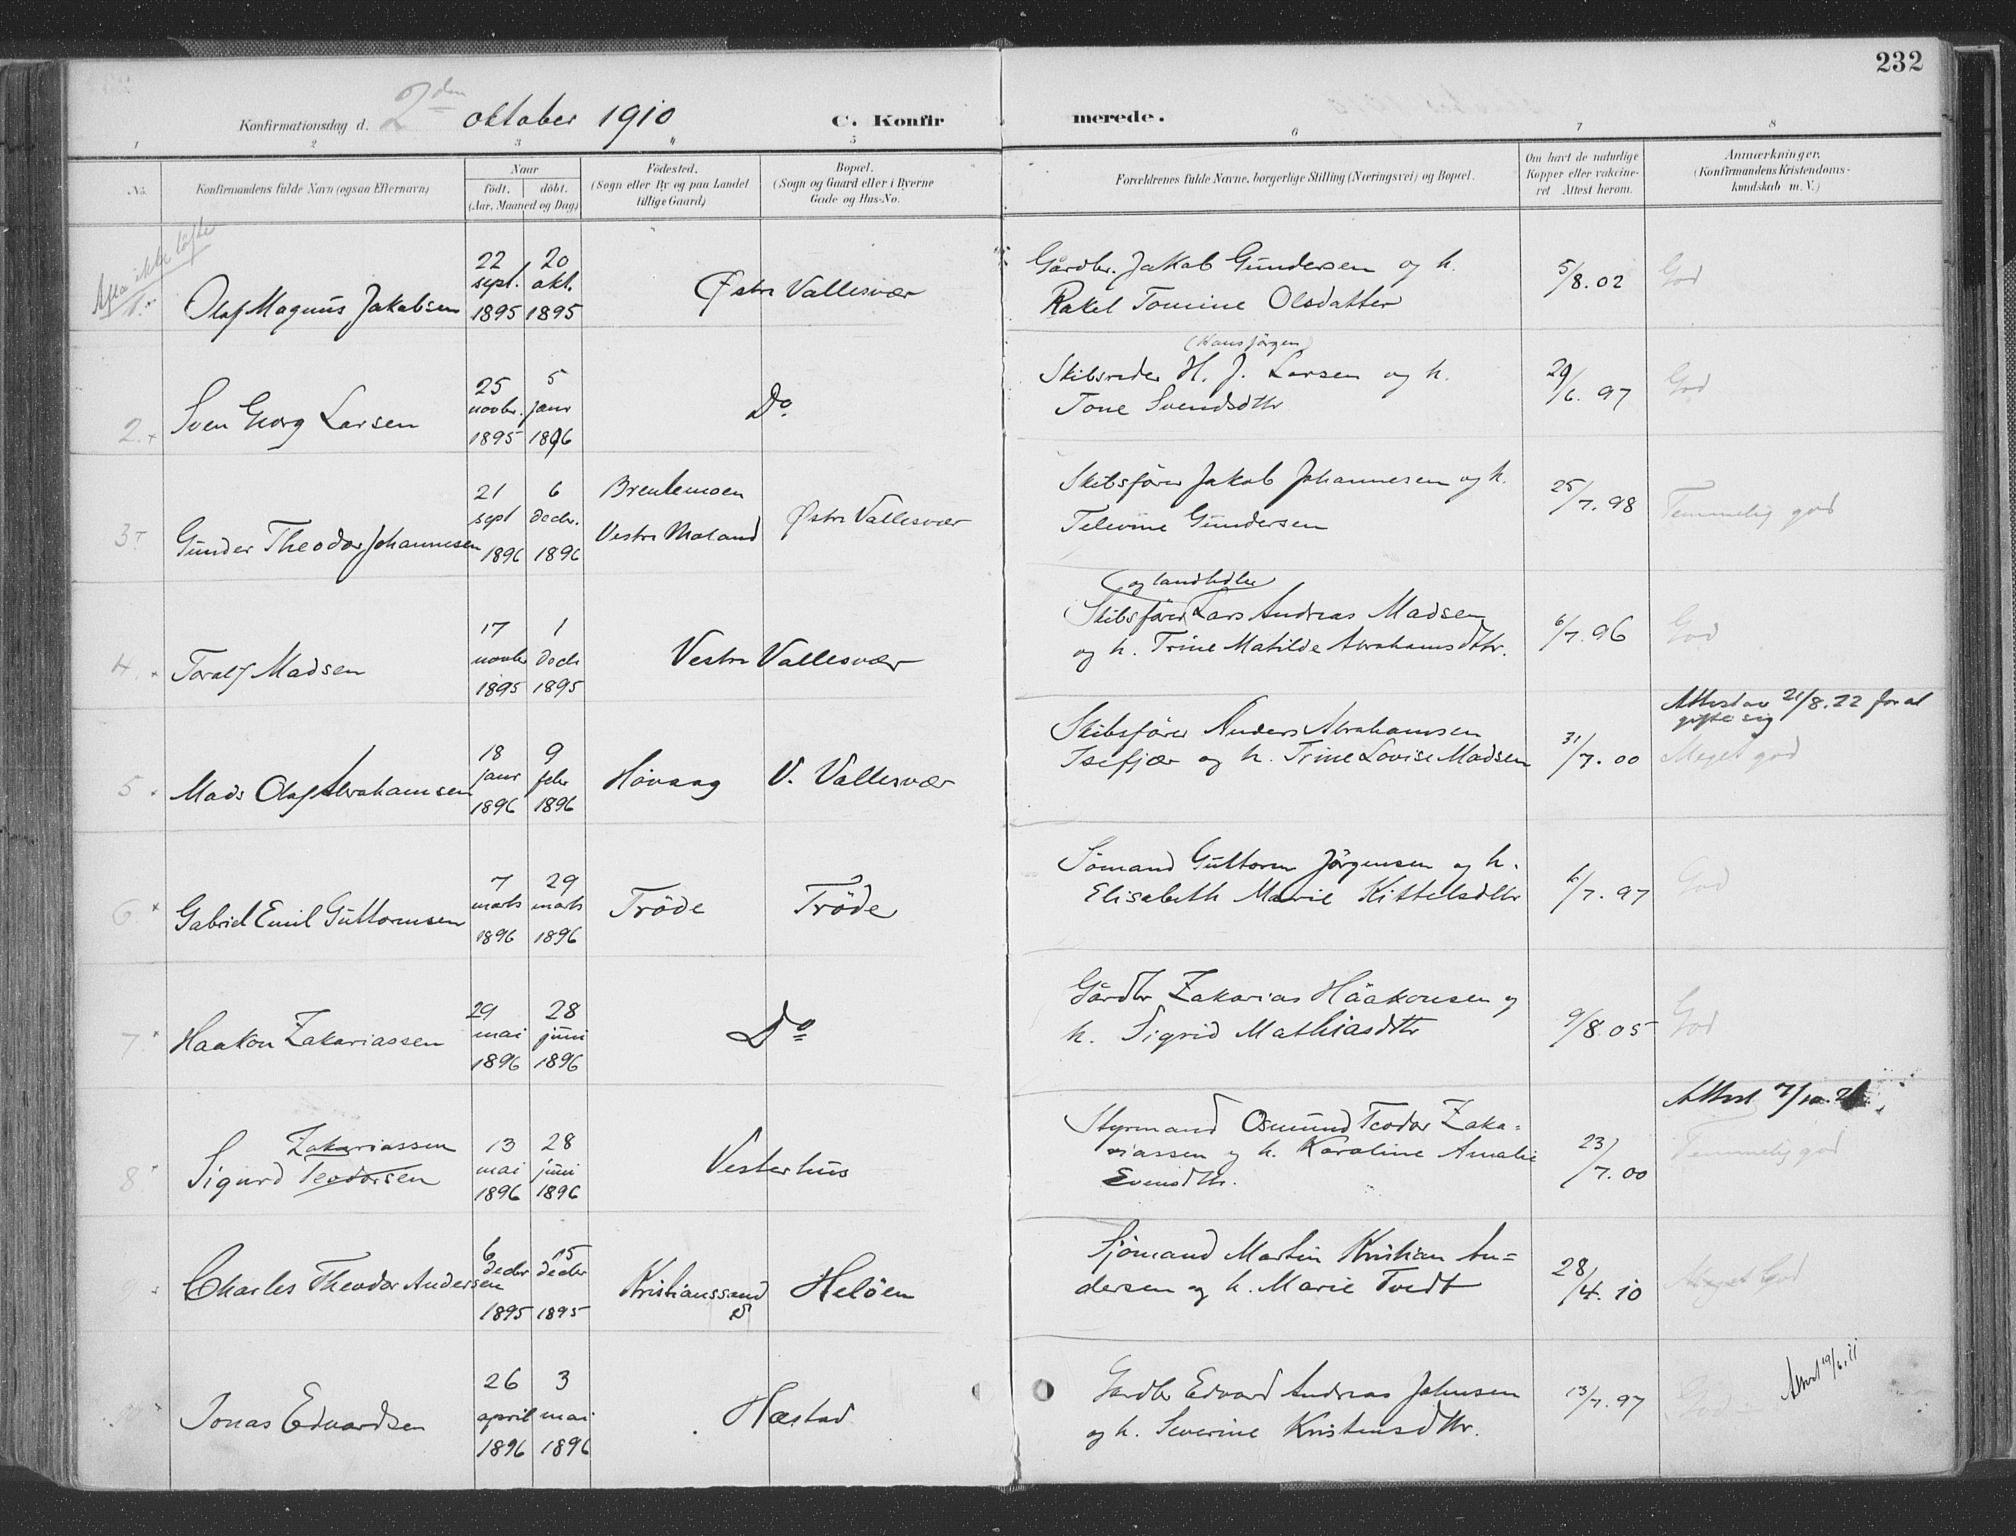 232
Konfirmationsdag d. 2den oktober 1910 C. Konfirmerede.
1 2 3 4 5 6 7 8
No. Konfirmandens fulde Navn (ogsaa Efternavn) Naar født. døbt. (Aar, Maaned og Dag) Fødested. (Sogn eller By og paa Landet tillige Gaard) Bopæl. (Sogn og Gaard eller i Byerne Gade og Hus-No. Forældrenes fulde Navne, borgerlige Stilling (Næringsvei) og Bopæl. Om havt de naturlige Kopper eller vakcineret Attest herom. Anmærkninger. (Konfirmandens Kristendomskundskab m. V.)
Afla ikke løfte
1. Olaf Magnus Jakobsen 22 sept. 1895 20 okt. 1895 Østre Vallesvær Gårdbr. Jakob Gundersen og h. Rakel Tomine Olsdatter 5/8.02 God
2. Sven Georg Larsen 25 novbr. 1895 5 janr 1896 Do Skibsreder H. J. (Hans Jørgen) Larsen og h. Tone Svendsdtr 29/6.97 God
3 Gunder Theodor Johannesen 21 sept 1896 6 decbr. 1896 Brentemoen Vestre Moland Østre Vallesvær Skibsfører Jakob Johannesen og h. Televine Gundersen 25/7.98 Temmelig god
4. Toralf Madsen 17 novbr 1895 1 decbr 1895 Vestre Vallesvær Skibsfører og landhdler Lars Andreas Madsen og h. Trine Matilde Abrahamsdttr. 6/7.96 God
5. Mads Olaf Abrahamsen 18 janr 1896 9 febr 1896 Høvaag V. Vallesvær Skibsfører Anders Abrahamsen Isefjær og h. Trine Lovise Madsen 31/7.00 Attest av 21/8.22 for at gifte sig Meget god
6. Gabriel Emil Guttormsen 7 marts 1896 29 marts 1896 Trøde Trøde Sømand Guttorm Jørgensen og h. Elisabeth Marie Kittelsdttr 6/7.97 God
7 Haakon Zakariassen 29 mai 1896 28 juni 1896 Do Gårdbr Zakarias Håakonsen og h. Sigrid Mathiasdttr 9/8.05 God
8 Sigurd Teodorsen Zakariassen 13 mai 1896 28 juni 1896 Vesterhus Styrmand Osmund Teodor Zakariassen og h. Karoline Amalie Evensdtr. 23/7.00 Attest 7/10. Temmelig god
9 Charles Theodor Andersen 6 decbr 1895 15 decbr 1895 Kristianssand S Heløen Sjømand Martin Kristian Andersen og h. Marie Tvedt 28/4.10 Meget God
Jonas Edvardsen 26 april 1896 3 mai 1896 Hæstad Gardbr Edvard Andreas Johnsen og h. Severine Kristensdttr. 13/7.97 God Attest 19/6.11